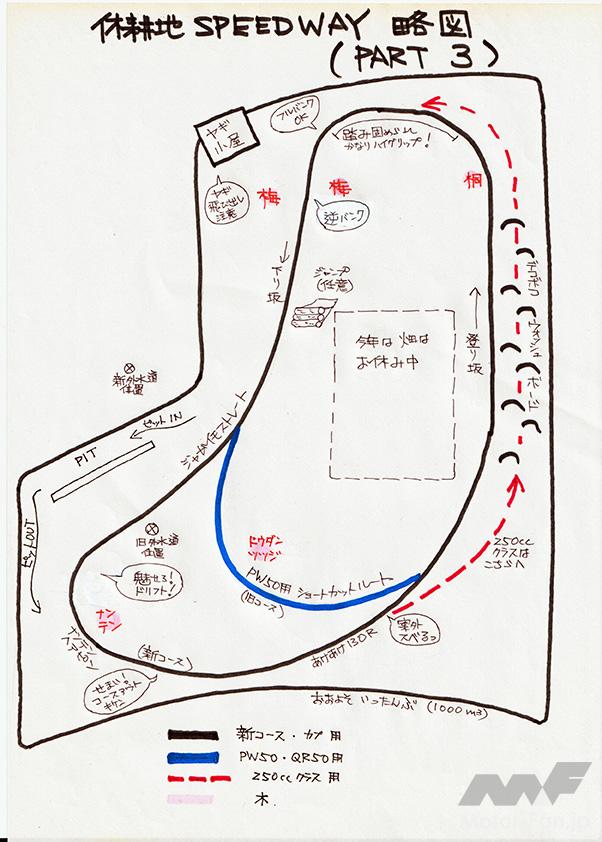 休耕地 SPEEDWAY 略図
(PART 3)
ヤギ
小屋
フルバンク
OK
踏み固められ
かなりハイグリップ!
ヤギ
飛び出し
注意
梅
梅
桐
逆バンク
下り坂
ジャンプ
(任意)
今年は畑は
お休み中
登り坂
デコボコ
ウォッシュ
ボード
新外水道
位置
ピットIN
PIT
ピットOUT
ジャガイモストレート
旧外水道
位置
魅せろ!
ドリフト!
ドウダン
ツツジ
PW50用 ショートカットルート
(旧コース)
250cc
クラスは
こちらへ
ナン
テン
ナンテン
ヘアピン
(新コース)
あけあけ130R
案外
スベるっ
せまい!
コースアウト
キケン
おおよそ いったんぶ (1000m3)
新コース・カブ用
PW50・QR50用
250ccクラス用
木
Motor-Fan.jp